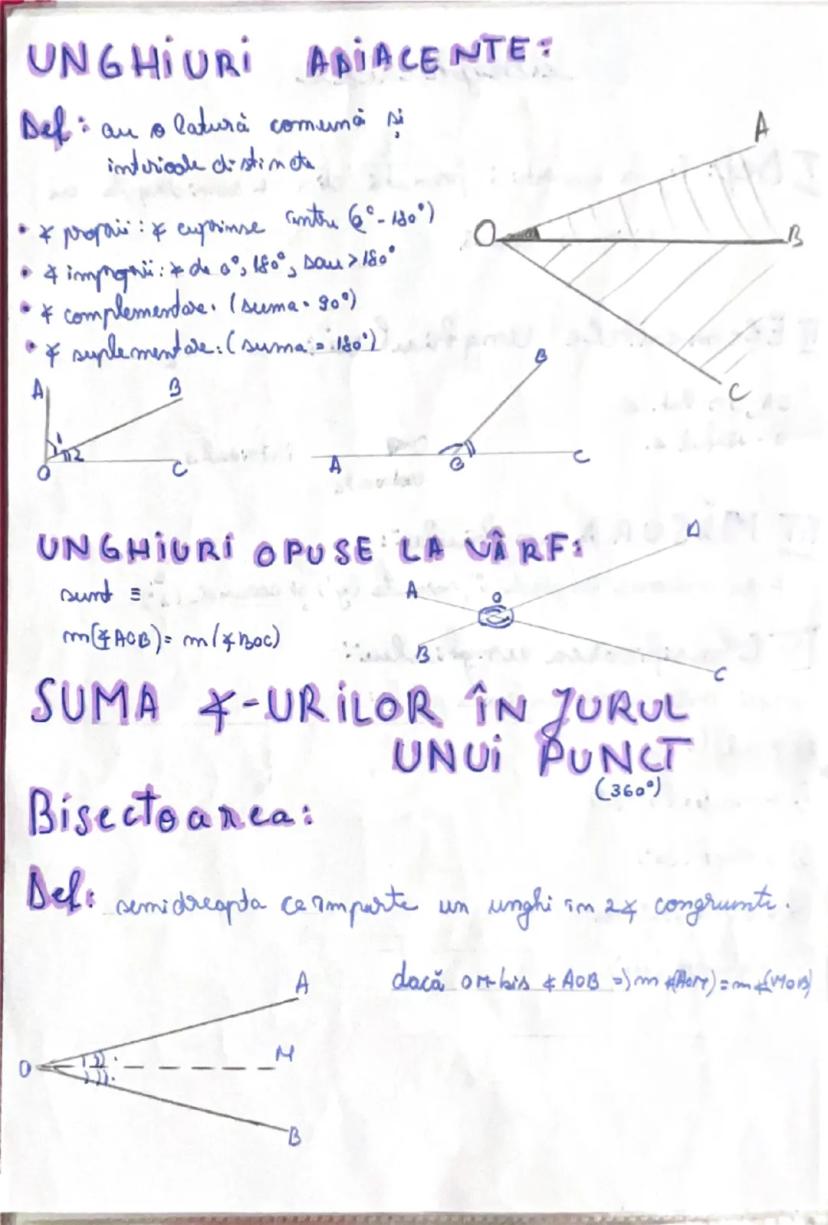 UNGHIURI ADIACENTE:
Def: au o latură comună și
interioare distincte
• ∢ proprii: ∢ cuprinse între (0° - 180°)
• ∢ improprii: ∢ de 0°, 180°, sau > 180°
• ∢ complementare. (suma = 90°)
• ∢ suplementare: (suma = 180°)
A
O
B
C
A
B
1
2
O
C
B
A
O
C
UNGHIURI OPUSE LA VÂRF:
sunt ≡
m(∢AOB) = m(∢BOC)
A
O
D
B
C
SUMA ∢-URILOR ÎN JURUL
UNUI PUNCT
(360°)
Bisectoarea:
Def: semidreapta ce împarte un unghi în 2∢ congruente.
dacă OM-bis ∢AOB => m∢(AOM) = m∢(MOB)
A
O
M
B